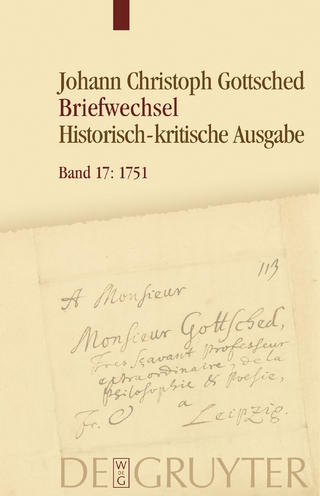 Johann Christoph Gottsched
Briefwechsel
Historisch-kritische Ausgabe
Band 17: 1751
113
A Monsieur
Monsieur Gottsched,
Tres sçavant Professeur
extraordinaire, de la
Philosophie & Poesie,
a
Fr. Leipzig.
DE GRUYTER
W
DE
G